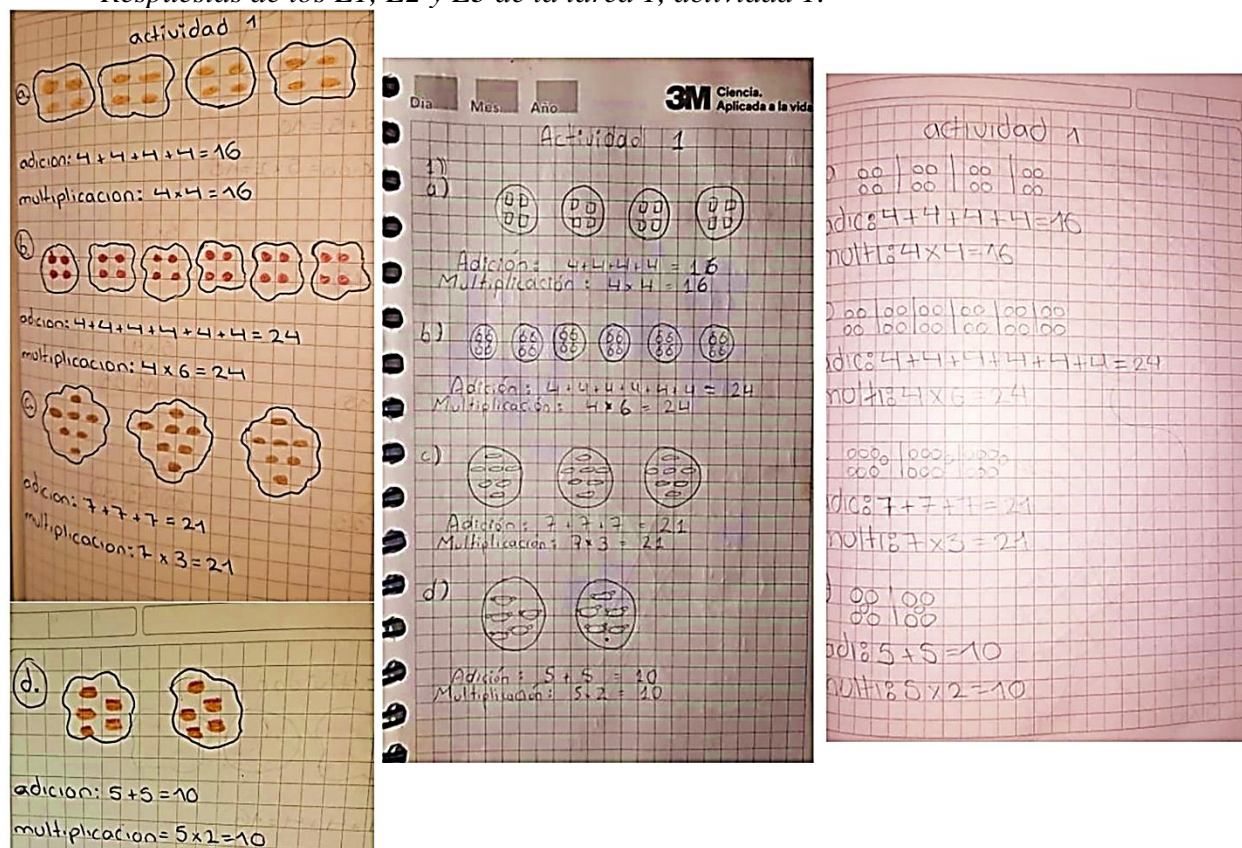 Respuestas de los E1, E2 y E3 de la tarea 1, actividad 1.
actividad 1
a.
adicion: 4+4+4+4=16
multiplicacion: 4x4=16
b.
adicion: 4+4+4+4+4+4=24
multiplicacion: 4x6=24
c.
adicion: 7+7+7=21
multiplicacion: 7x3=21
d.
adicion: 5+5=10
multiplicacion= 5x2=10
Día Mes Año
3M Ciencia.
Aplicada a la vida
Actividad 1
1)
a)
Adición: 4+4+4+4 = 16
Multiplicación: 4x4 = 16
b)
Adición: 4+4+4+4+4+4 = 24
Multiplicación: 4x6 = 24
c)
Adición: 7+7+7 = 21
Multiplicación: 7x3 = 21
d)
Adición: 5+5 = 10
Multiplicación: 5x2 = 10
actividad 1
adic: 4+4+4+4=16
multi: 4x4=16
adic: 4+4+4+4+4+4=24
multi: 4x6=24
adic: 7+7+7=21
multi: 7x3=21
adi: 5+5=10
multi: 5x2=10